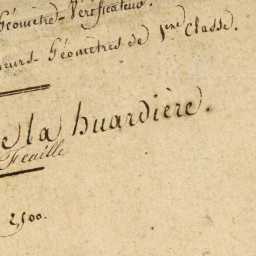 Géomètre-Vérificateur.
Géomètres de 1ère Classe.
e la huardière.
Feuille
2500.